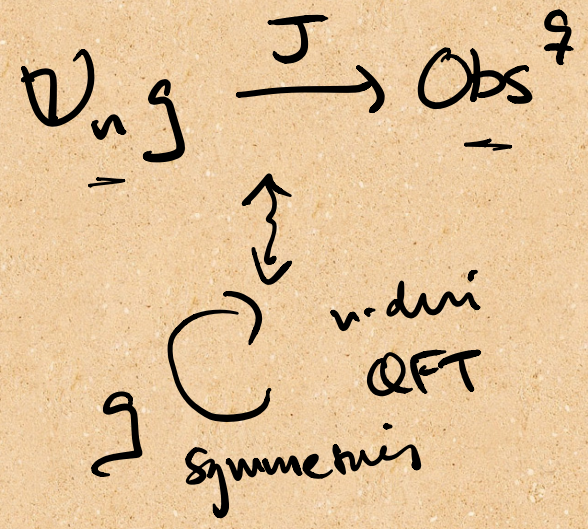 J
U_n g → Obs^q
↕
g ↻ n-dim
QFT
symmetries